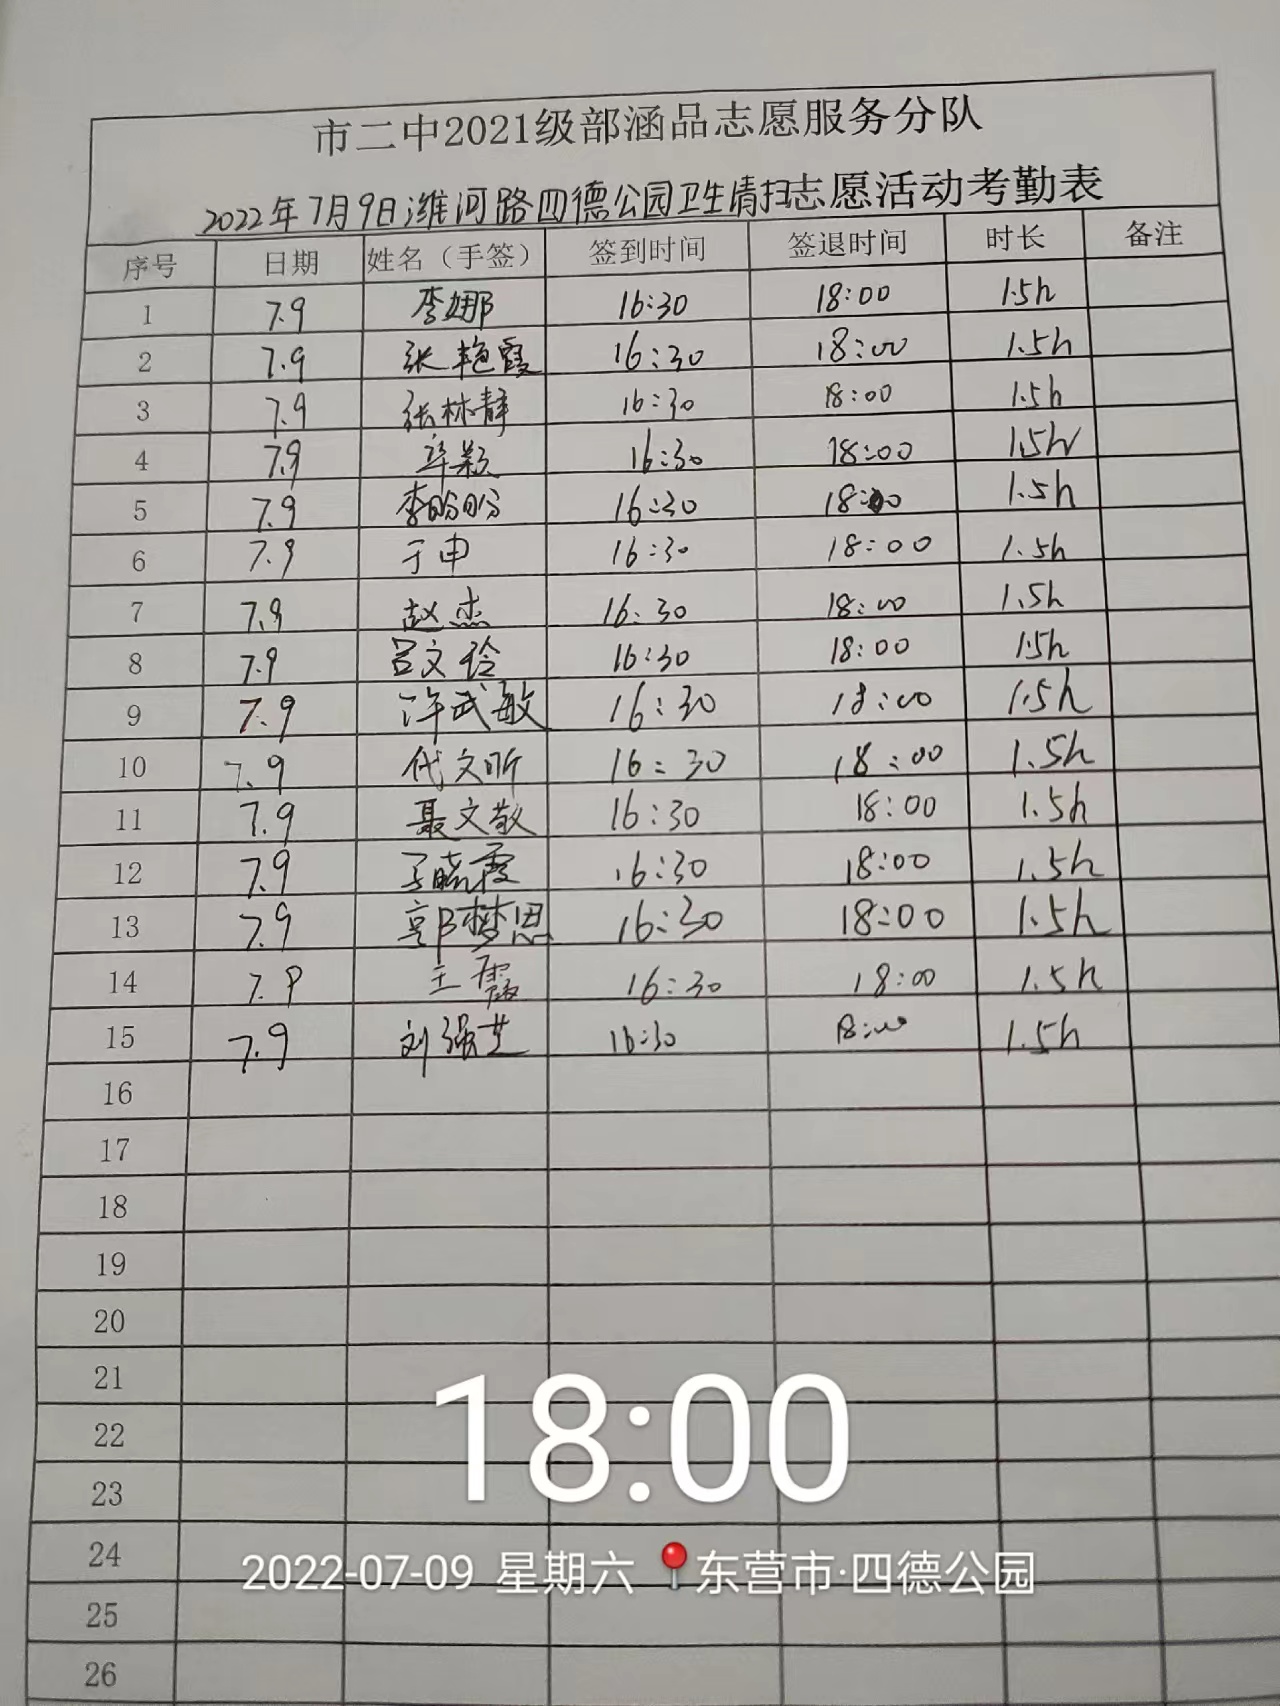 市二中2021级部涵品志愿服务分队
2022年7月9日潍河路四德公园卫生清扫志愿活动考勤表
序号 日期 姓名（手签） 签到时间 签退时间 时长 备注
1 7.9 李娜 16:30 18:00 1.5h
2 7.9 张艳霞 16:30 18:00 1.5h
3 7.9 张林静 16:30 18:00 1.5h
4 7.9 16:30 18:00 1.5h
5 7.9 李盼盼 16:30 18:00 1.5h
6 7.9 于申 16:30 18:00 1.5h
7 7.9 赵杰 16:30 18:00 1.5h
8 7.9 吕文玲 16:30 18:00 1.5h
9 7.9 许武敏 16:30 18:00 1.5h
10 7.9 代文昕 16:30 18:00 1.5h
11 7.9 聂文敬 16:30 18:00 1.5h
12 7.9 16:30 18:00 1.5h
13 7.9 郭梦思 16:30 18:00 1.5h
14 7.9 王霞 16:30 18:00 1.5h
15 7.9 刘强芝 16:30 18:00 1.5h
16
17
18
19
20
21
22
23
24
25
26
18:00
2022-07-09 星期六 东营市·四德公园